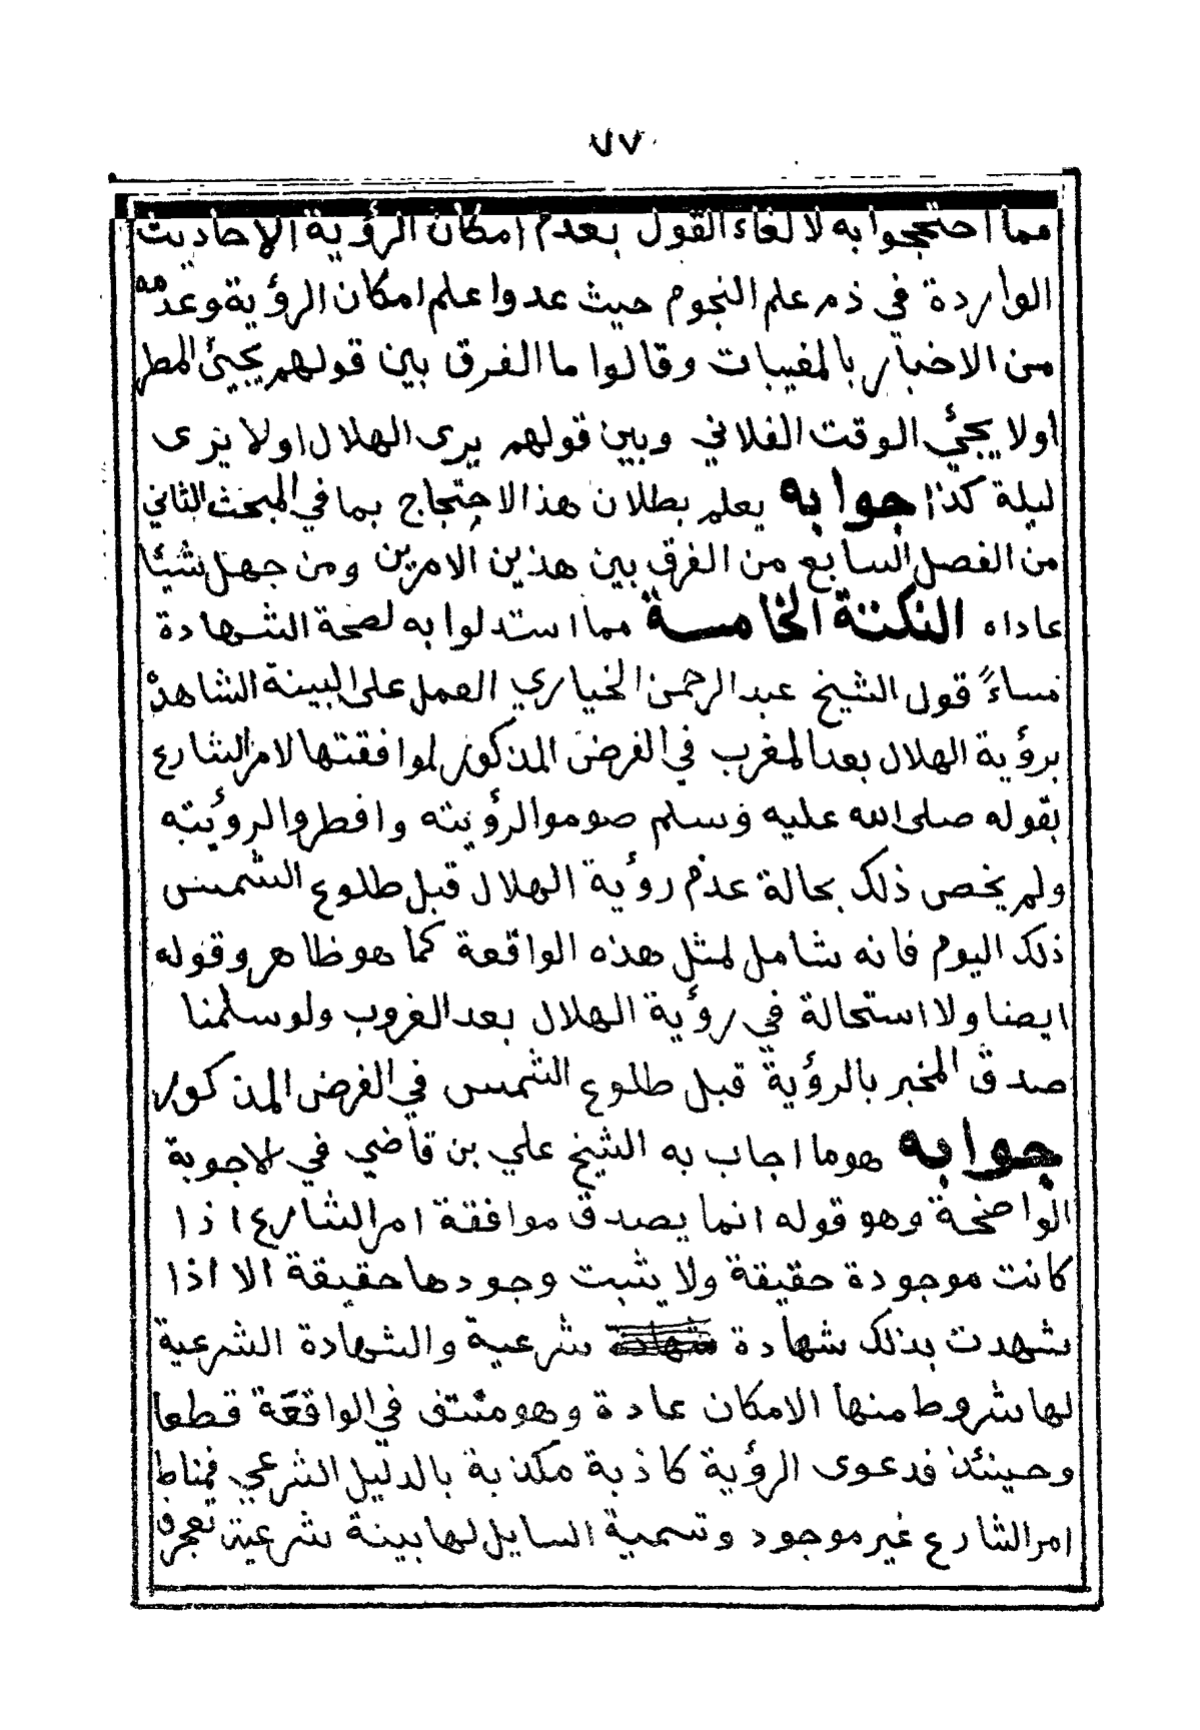 ٧٧
مما احتججوا به لالغاء القول بعدم امكان الرؤية الاحاديث
الواردة في ذم علم النجوم حيث عدوا علم امكان الرؤية وعدّه
من الاخبار بالمغيبات وقالوا ما الفرق بين قولهم يجيئ المطر
اولا يجيئ الوقت الفلاني وبين قولهم يرى الهلال اولا يرى
ليلة كذا جوابه يعلم بطلان هذا الاحتجاج بما في المبحث الثاني
من الفصل السابع من الفرق بين هذين الامرين ومن جهل شيئا
عاداه النكتة الخامسة مما استدلوا به لصحة الشهادة
مساءً قول الشيخ عبد الرحمن الخياري العمل على البينة الشاهدة
برؤية الهلال بعد المغرب في الفرض المذكور لموافقتها لامر الشارع
بقوله صلى الله عليه وسلم صوموا لرؤيته وافطروا لرؤيته
ولم يخص ذلك بحالة عدم رؤية الهلال قبل طلوع الشمس
ذلك اليوم فانه شامل لمثل هذه الواقعة كما هو ظاهر وقوله
ايضا ولا استحالة في رؤية الهلال بعد الغروب ولو سلمنا
صدق المخبر بالرؤية قبل طلوع الشمس في الفرض المذكور
جوابه هو ما اجاب به الشيخ علي بن قاضي في الاجوبة
الواضحة وهو قوله انما يصدق موافقة امر الشارع اذا
كانت موجودة حقيقة ولا يثبت وجودها حقيقة الا اذا
شهدت بذلك شهادة شرعية والشهادة الشرعية
لها شروط منها الامكان عادة وهو منتف في الواقعة قطعا
وحينئذ فدعوى الرؤية كاذبة مكذبة بالدليل الشرعي فمناط
امر الشارع غير موجود وتسمية السايل لها بينة شرعية تعجرف